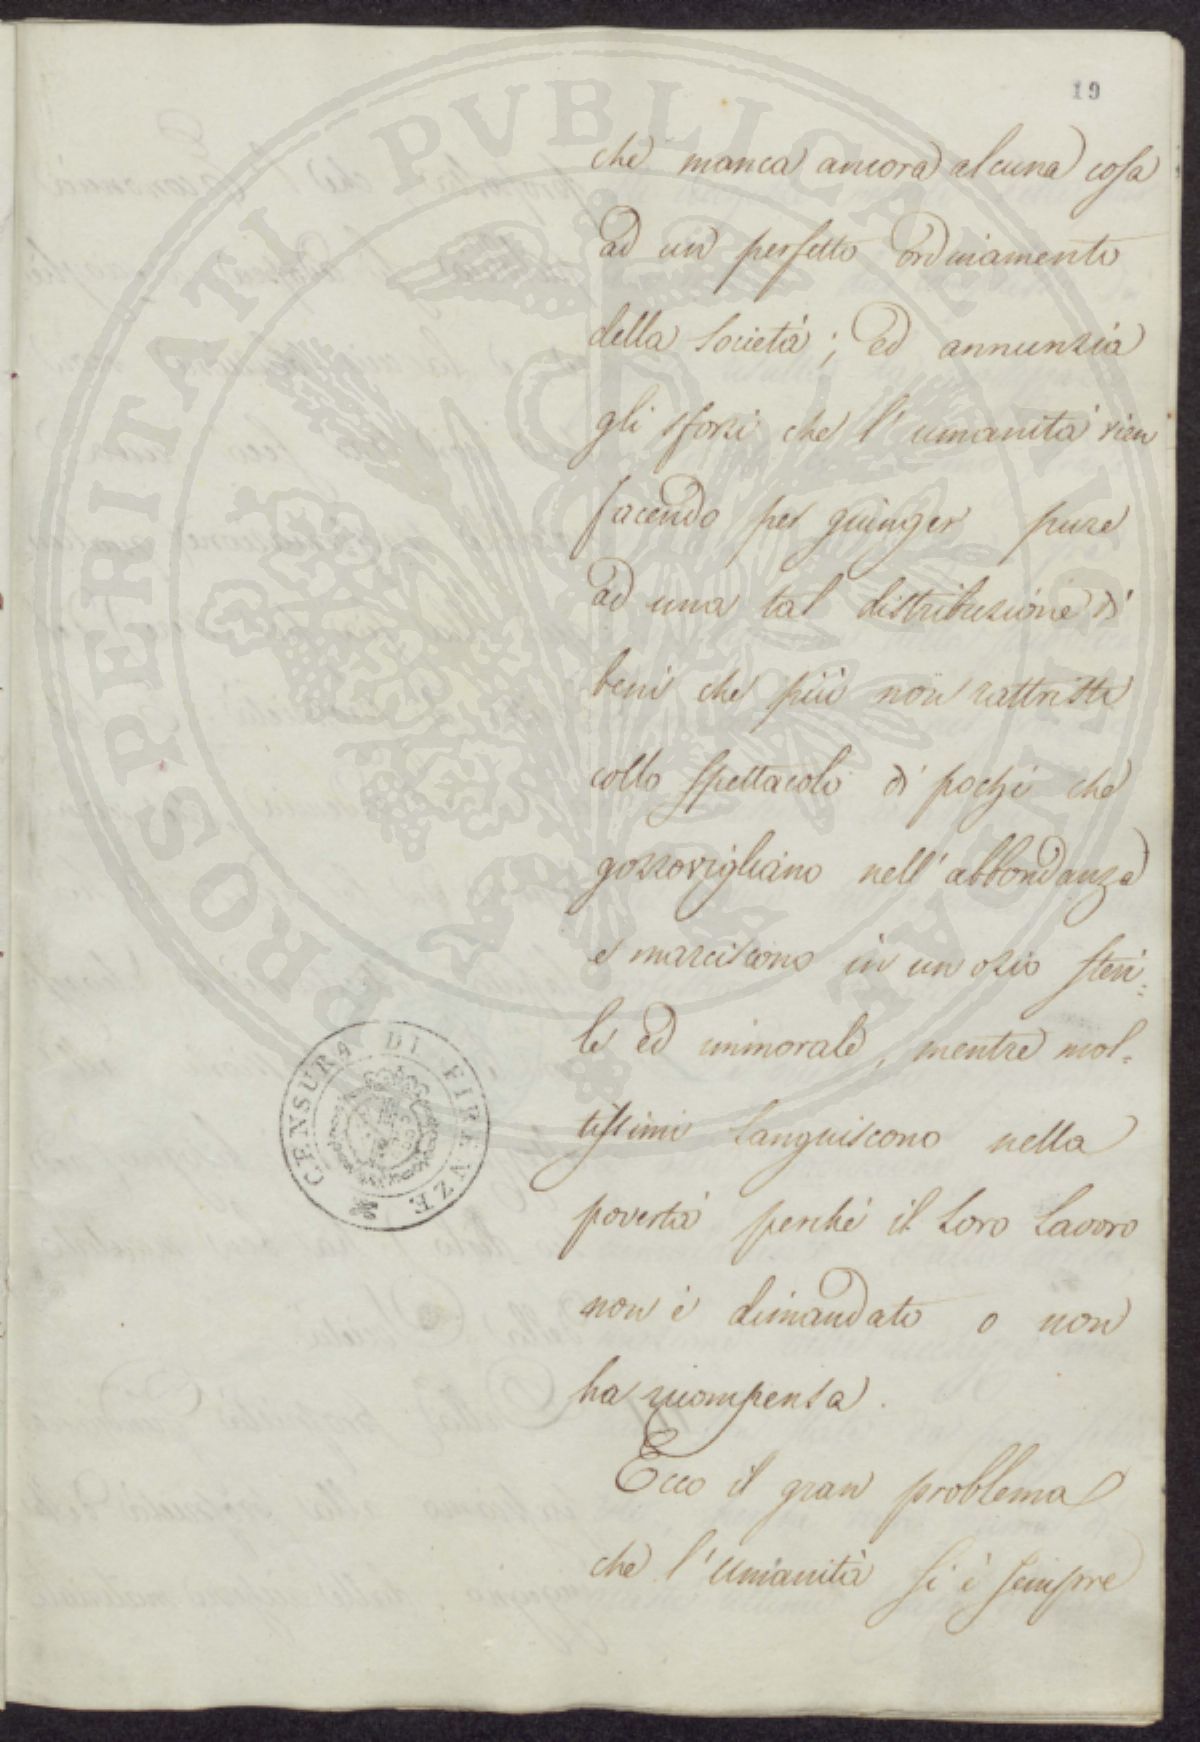 19
che manca ancora alcuna cosa
ad un perfetto ordinamento
della Società; ed annunzia
gli sforzi che l'umanità vien
facendo per giunger pure
ad una tal distribuzione di
beni che più non rattristi
collo spettacolo di pochi che
gozzovigliano nell'abbondanza
e marciscono in un ozio steri=
le ed immorale, mentre mol=
tissimi languiscono nella
povertà perché il loro lavoro
non è dimandato o non
ha ricompensa.
Ecco il gran problema
che l'Umanità si è sempre
CENSURA DI FIRENZE
PROSPERITATI PUBLICAE